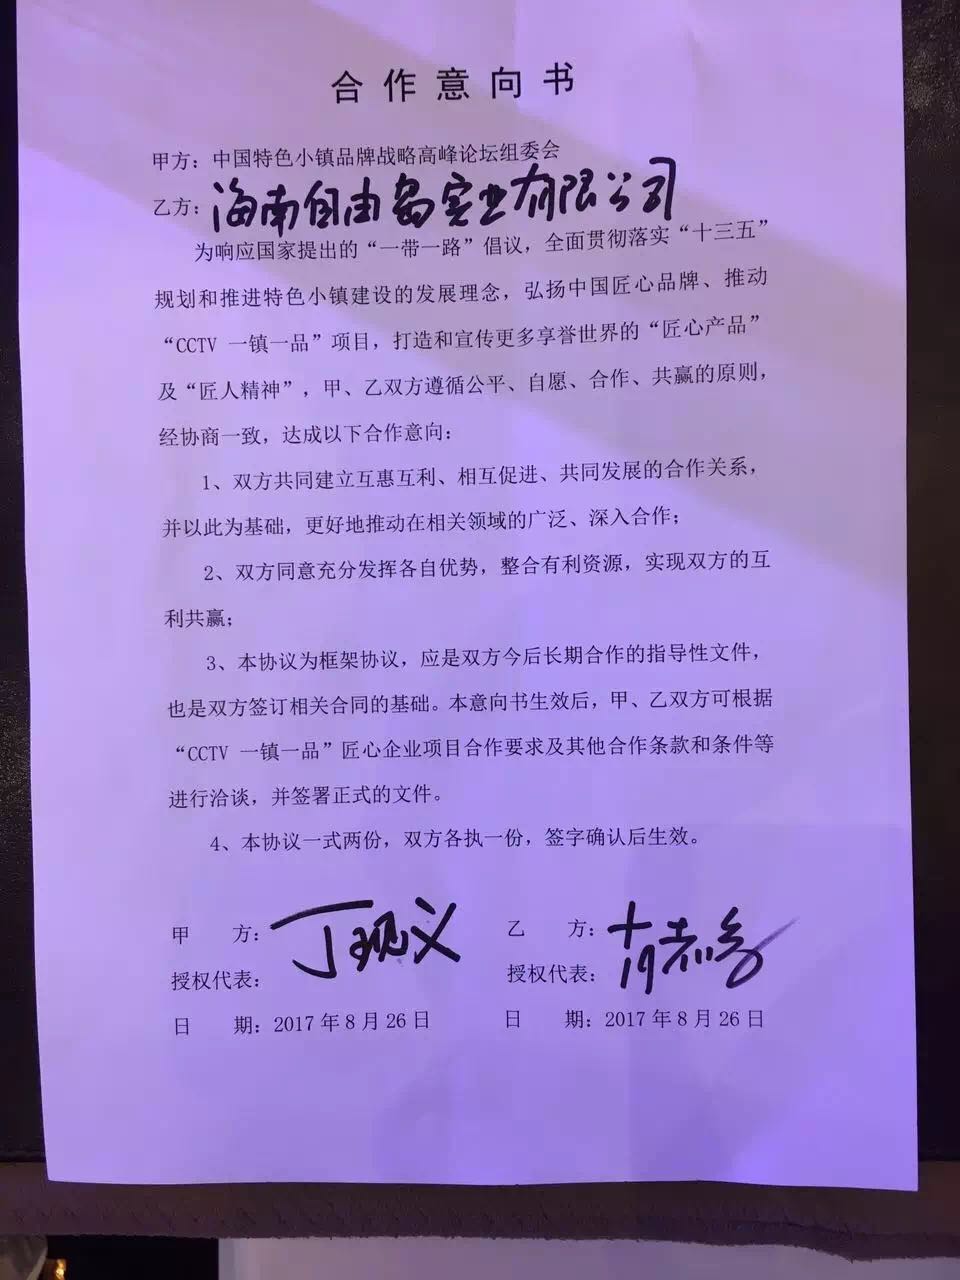 合作意向书
甲方：中国特色小镇品牌战略高峰论坛组委会
乙方：海南自由岛实业有限公司
为响应国家提出的“一带一路”倡议，全面贯彻落实“十三五”
规划和推进特色小镇建设的发展理念，弘扬中国匠心品牌、推动
“CCTV 一镇一品”项目，打造和宣传更多享誉世界的“匠心产品”
及“匠人精神”，甲、乙双方遵循公平、自愿、合作、共赢的原则，
经协商一致，达成以下合作意向：
1、双方共同建立互惠互利、相互促进、共同发展的合作关系，
并以此为基础，更好地推动在相关领域的广泛、深入合作；
2、双方同意充分发挥各自优势，整合有利资源，实现双方的互
利共赢；
3、本协议为框架协议，应是双方今后长期合作的指导性文件，
也是双方签订相关合同的基础。本意向书生效后，甲、乙双方可根据
“CCTV 一镇一品”匠心企业项目合作要求及其他合作条款和条件等
进行洽谈，并签署正式的文件。
4、本协议一式两份，双方各执一份，签字确认后生效。
甲 方： 丁现义 乙 方：
授权代表： 授权代表：
日 期：2017年8月26日 日 期：2017年8月26日